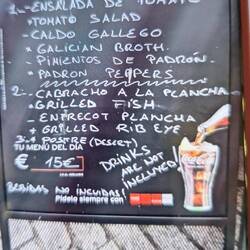 1.- ENSALADA DE TOMATE
*TOMATO SALAD
- CALDO GALLEGO
* GALICIAN BROTH.
- PIMIENTOS DE PADRÓN.
* PADRON PEPPERS
2.- CABRACHO A LA PLANCHA
* GRILLED FISH
- ENTRECOT PLANCHA
* GRILLED RIB EYE
3.- POSTRE (DESERT)
TU MENÚ DEL DÍA
€ 15€
DRINKS
ARE NOT
INCLUDED!
BEBIDAS NO INCUIDAS!
Pídelo siempre con